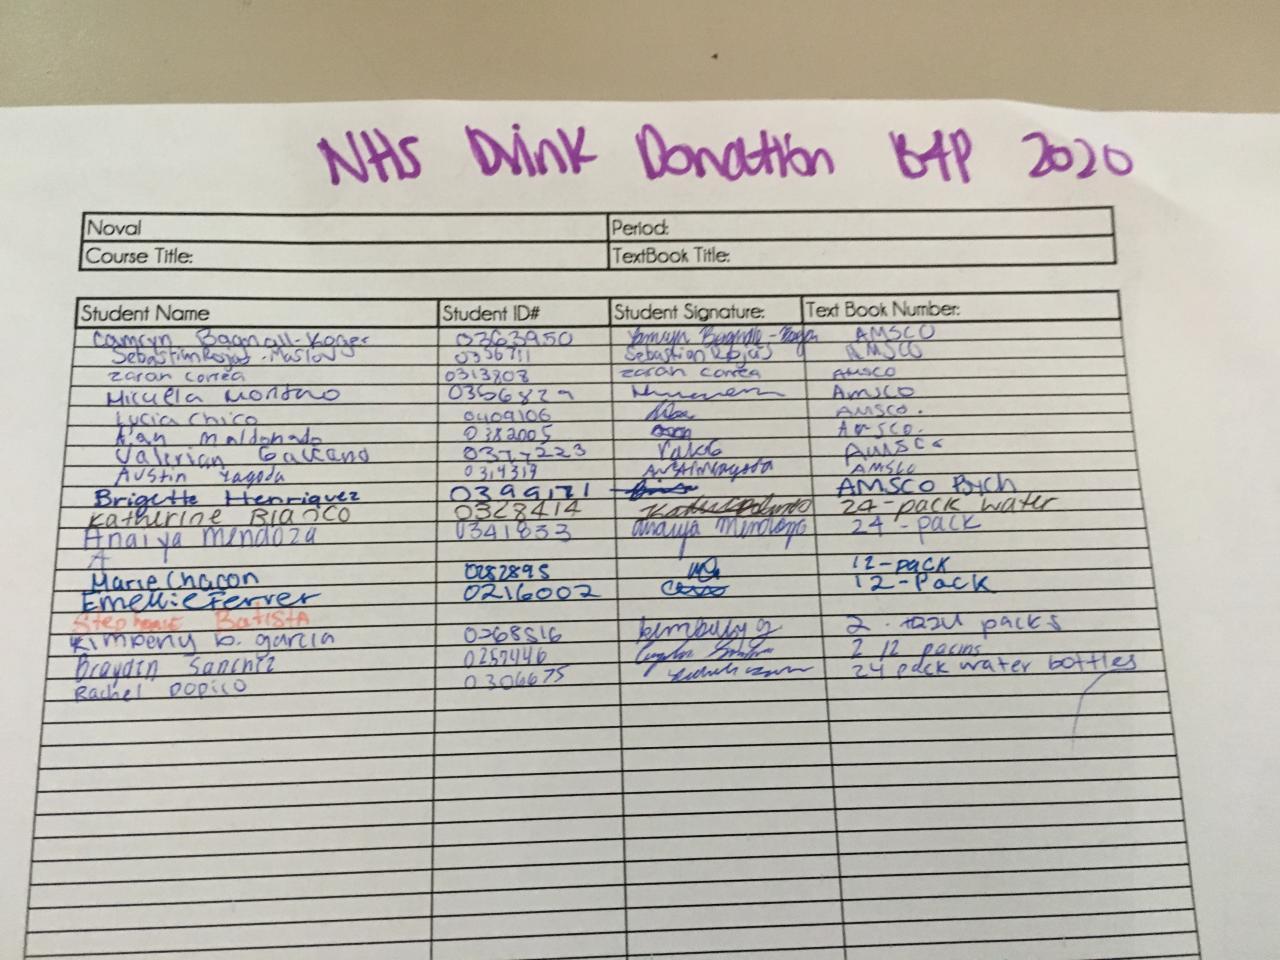 NHS Drink Donation BTP 2020
Noval Period:
Course Title: TextBook Title:
Student Name Student ID# Student Signature: Text Book Number:
Camryn Bagnall-Koger 0363950 Camryn Bagnall-Koger AMSCO
Sebastian Rojas-Maslow 0356711 Sebastian Rojas AMSCO
zarah correa 0313808 zarah correa AMSCO
Micaela Montano 0366829 AMSCO
Lucia Chico 0409106 AMSCO.
Alan Maldonado 0382005 AMSCO.
Valerian Galeano 0377223 AMSCO
Austin Yagoda 0314319 AustinYagoda AMSCO
Brigette Henriquez 0399171 AMSCO Bych
Katherine Blanco 0328414 24-pack water
Anaiya Mendoza 0341833 anaiya Mendoza 24-pack
A
Marie Chacon 0282895 12-pack
Emellie Ferrer 0216002 12-Pack
Stephanie Batista
Kimberly b. garcia 0268516 kimberly g 2 packs
Braydin Sanchez 0257446 2 12 packs
Rachel Dopico 0306675 24 pack water bottles